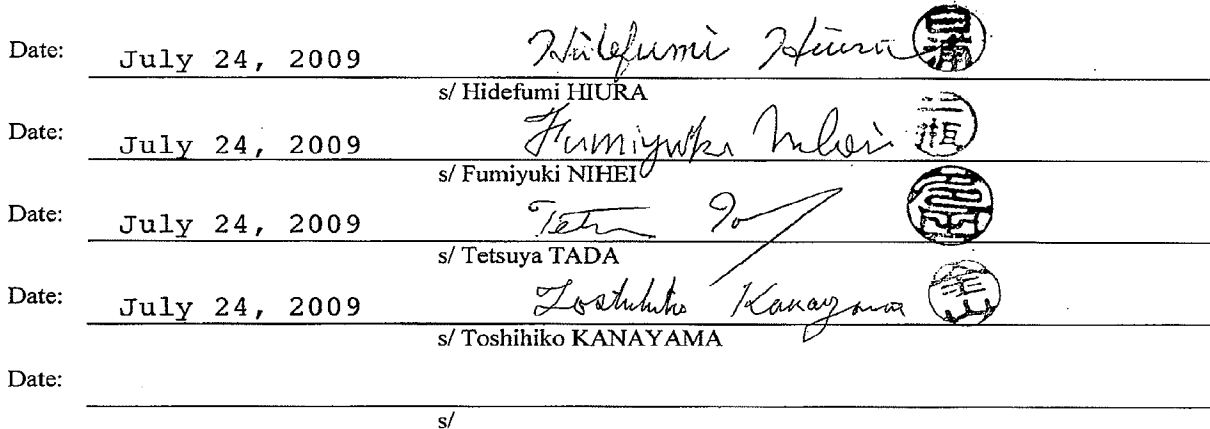 Date: July 24, 2009 Hidefumi Hiura
s/ Hidefumi HIURA
Date: July 24, 2009 Fumiyuki Nihei 二瓶
s/ Fumiyuki NIHEI
Date: July 24, 2009
s/ Tetsuya TADA
Date: July 24, 2009 Toshihiko Kanayama 金山
s/ Toshihiko KANAYAMA
Date:
s/